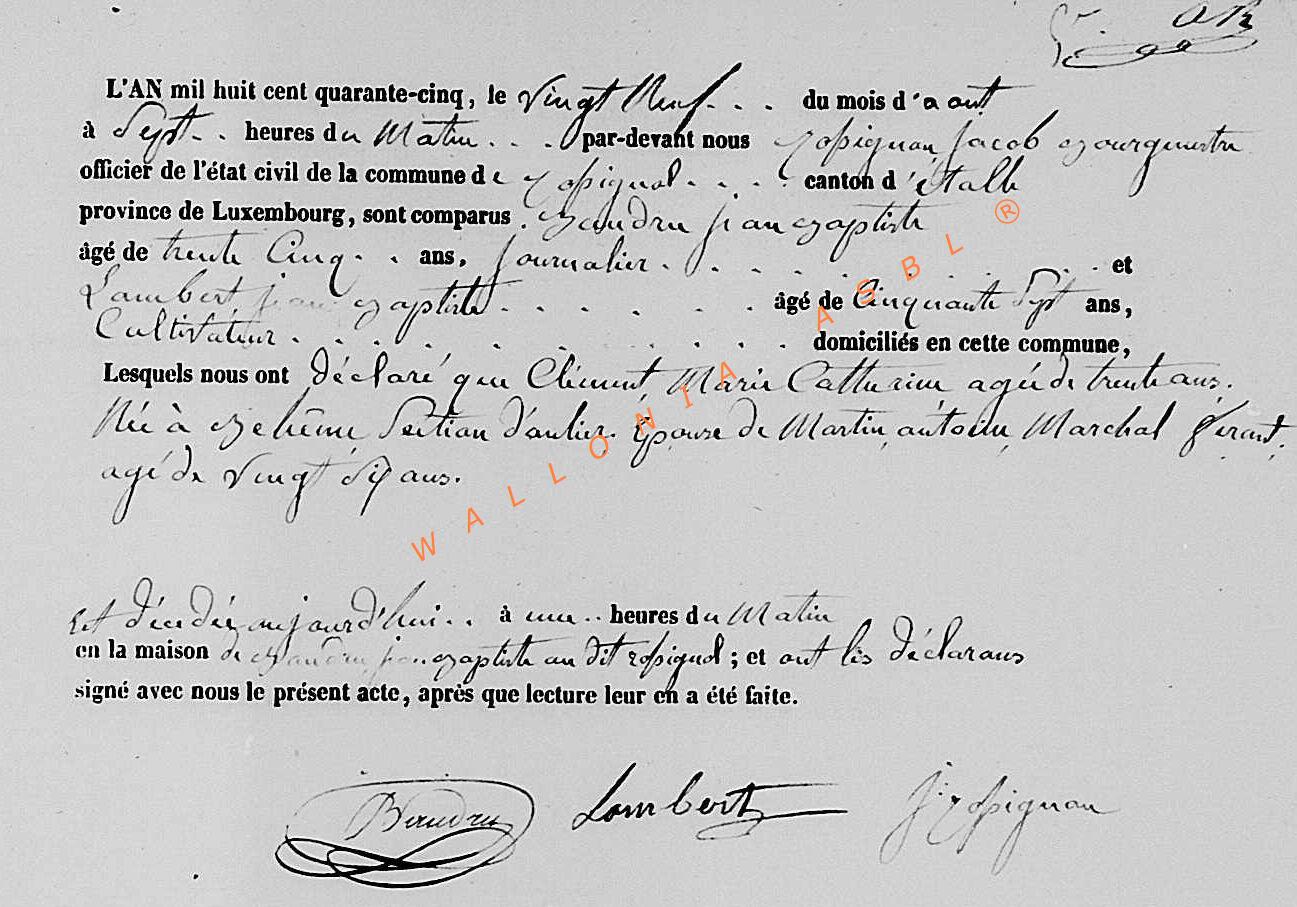 L'AN mil huit cent quarante-cinq, le vingt Neuf . . du mois d'aout
à Sept . . heures du Matin . . . par-devant nous Rossignon Jacob Bourguestre
officier de l'état civil de la commune de Rossignol . . . . canton d'étalle
province de Luxembourg, sont comparus . Baudru jean Baptiste
âgé de trente Cinq . . ans, journalier . . . . . . . . . et
Lambert jean Baptiste . . . . . . âgé de Cinquante Sept ans,
Cultivateur . . . . . . . . . . domiciliés en cette commune,
Lesquels nous ont déclaré que Clément, Marie Catherine agée de trente ans.
Née à Behême Section d'anlier. Epouse de Martin, antoine, Marchal
agé de vingt Six ans.
Est décédée aujourd'hui . . à une . . heures du Matin
en la maison de Baudru jean Baptiste au dit Rossignol ; et ont les déclarans
signé avec nous le présent acte, après que lecture leur en a été faite.
Baudru Lambert J: Rossignon
WALLONIA ASBL ®